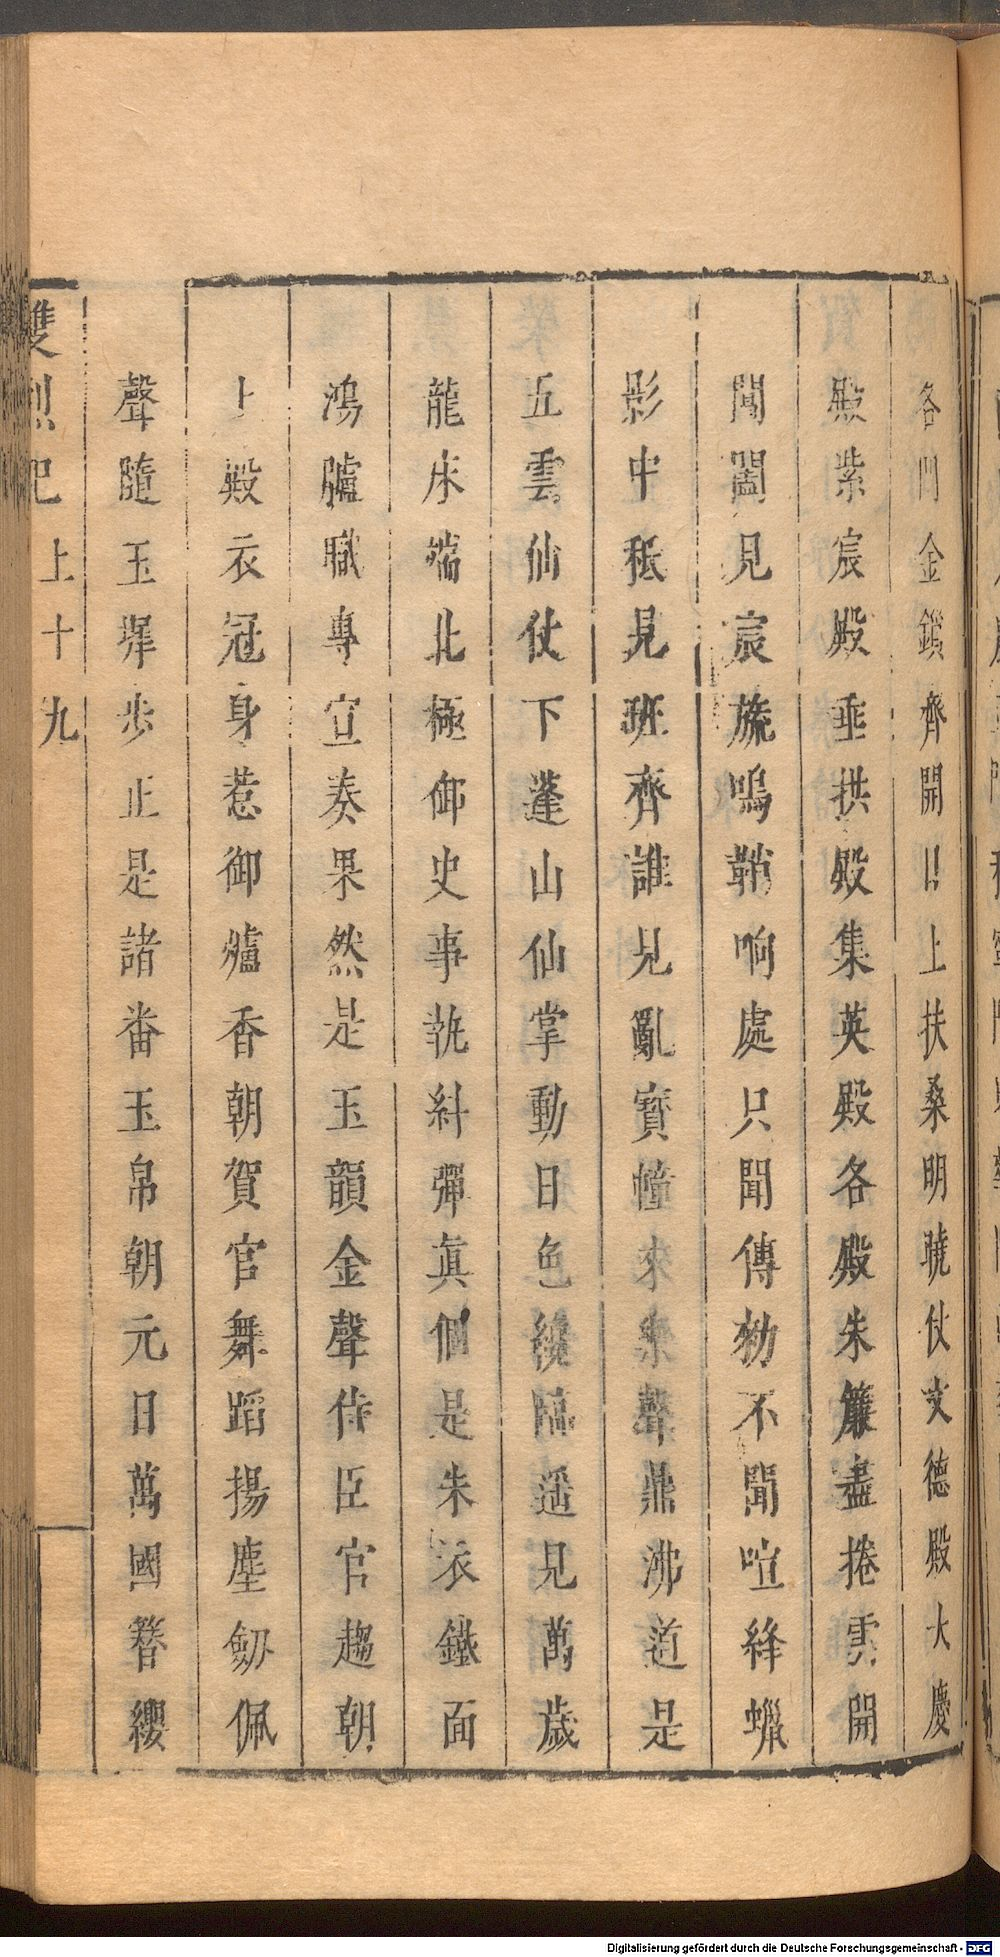 各門金鎖齊開日上扶桑明曉仗文德殿大慶
殿紫宸殿垂拱殿集英殿各殿朱簾盡捲雲開
閶闔見宸旒鳴鞘响處只聞傳勑不聞喧絳蠟
影中秪見班齊誰見亂寳幢來樂聲鼎沸道是
五雲仙仗下蓬山仙掌動日色纔臨遥見萬歲
龍床端北極御史事執糾彈真個是朱衣鐵面
鴻臚職專宣奏果然是玉韻金聲侍臣官趨朝
上殿衣冠身惹御爐香朝賀官舞蹈揚塵劔佩
聲隨玉墀步止是諸番玉帛朝元日萬國簪纓
雙烈記 上十九
Digitalisierung gefördert durch die Deutsche Forschungsgemeinschaft - DFG